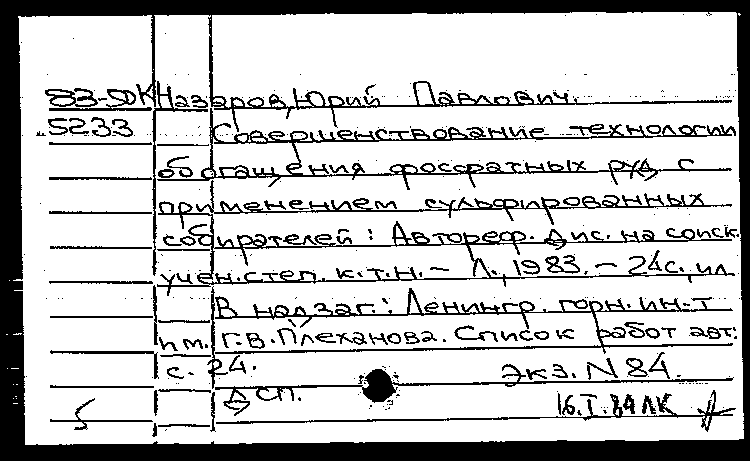 83-5ДК Назаров, Юрий Павлович.
5233 Совершенствование технологии
обогащения фосфатных руд с
применением сульфированных
собирателей : Автореф. Дис. на соиск.
учен. степ. к.т.н. – Л., 1983. – 24 с., ил
В надзаг.: Ленингр. горн. ин-т
им. Г.В. Плеханова. Список работ авт.:
с. 24. Экз. N 84.
Дсп.
5 16.I.84 ЛК